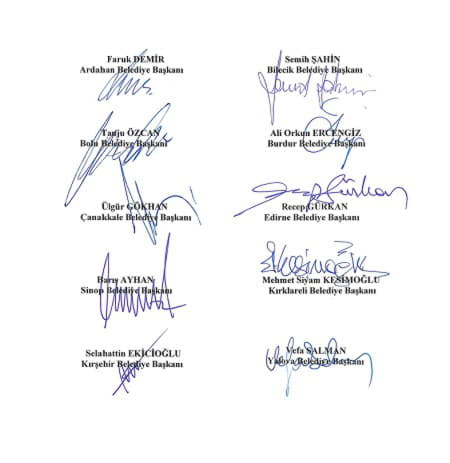 Faruk DEMİR
Ardahan Belediye Başkanı
Semih ŞAHİN
Bilecik Belediye Başkanı
Tanju ÖZCAN
Bolu Belediye Başkanı
Ali Orkun ERCENGİZ
Burdur Belediye Başkanı
Ülgür GÖKHAN
Çanakkale Belediye Başkanı
Recep GÜRKAN
Edirne Belediye Başkanı
Barış AYHAN
Sinop Belediye Başkanı
Mehmet Siyam KESİMOĞLU
Kırklareli Belediye Başkanı
Selahattin EKİCİOĞLU
Kırşehir Belediye Başkanı
Vefa SALMAN
Yalova Belediye Başkanı